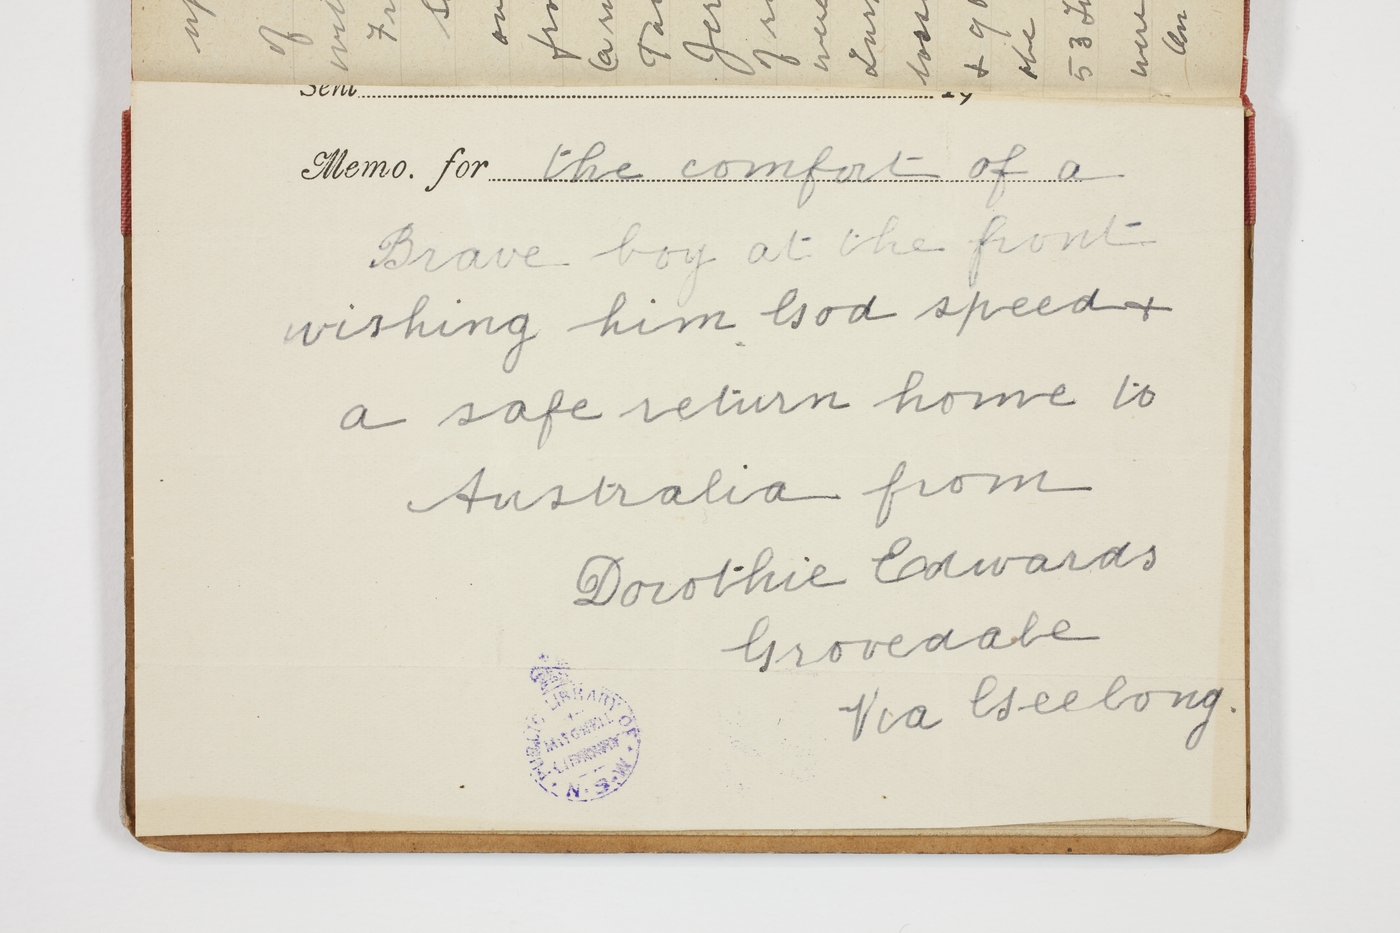 Sent
Memo. for the comfort of a
Brave boy at the front
wishing him God speed +
a safe return home to
Australia from
Dorothie Edwards
Grovedale
Via Geelong.
PUBLIC LIBRARY OF N.S.W.
MITCHELL
LIBRARY